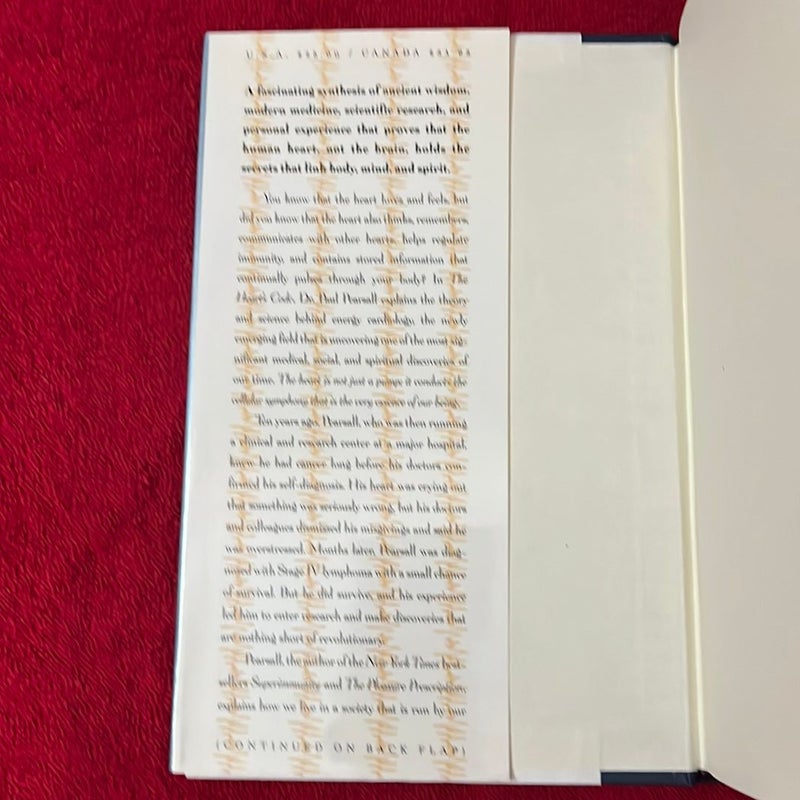 U.S.A. / CANADA
A fascinating synthesis of ancient wisdom,
modern medicine, scientific research, and
personal experience that proves that the
human heart, not the brain, holds the
secrets that link body, mind, and spirit.
You know that the heart loves and feels, but
did you know that the heart also thinks, remembers,
communicates with other hearts, helps regulate
immunity, and contains stored information that
continually pulses through your body? In The
Heart's Code, Dr. Paul Pearsall explains the theory
and science behind energy cardiology, the newly
emerging field that is uncovering one of the most sig-
nificant medical, social, and spiritual discoveries of
our time. The heart is not just a pump; it conducts the
cellular symphony that is the very essence of our being.
Ten years ago, Pearsall, who was then running
a clinical and research center at a major hospital,
knew he had cancer long before his doctors con-
firmed his self-diagnosis. His heart was crying out
that something was seriously wrong, but his doctors
and colleagues dismissed his misgivings and said he
was overstressed. Months later, Pearsall was diag-
nosed with Stage IV lymphoma with a small chance
of survival. But he did survive, and his experience
led him to enter research and make discoveries that
are nothing short of revolutionary.
Pearsall, the author of the New York Times best-
sellers Superimmunity and The Pleasure Prescription,
explains how we live in a society that is run by our
(CONTINUED ON BACK FLAP)